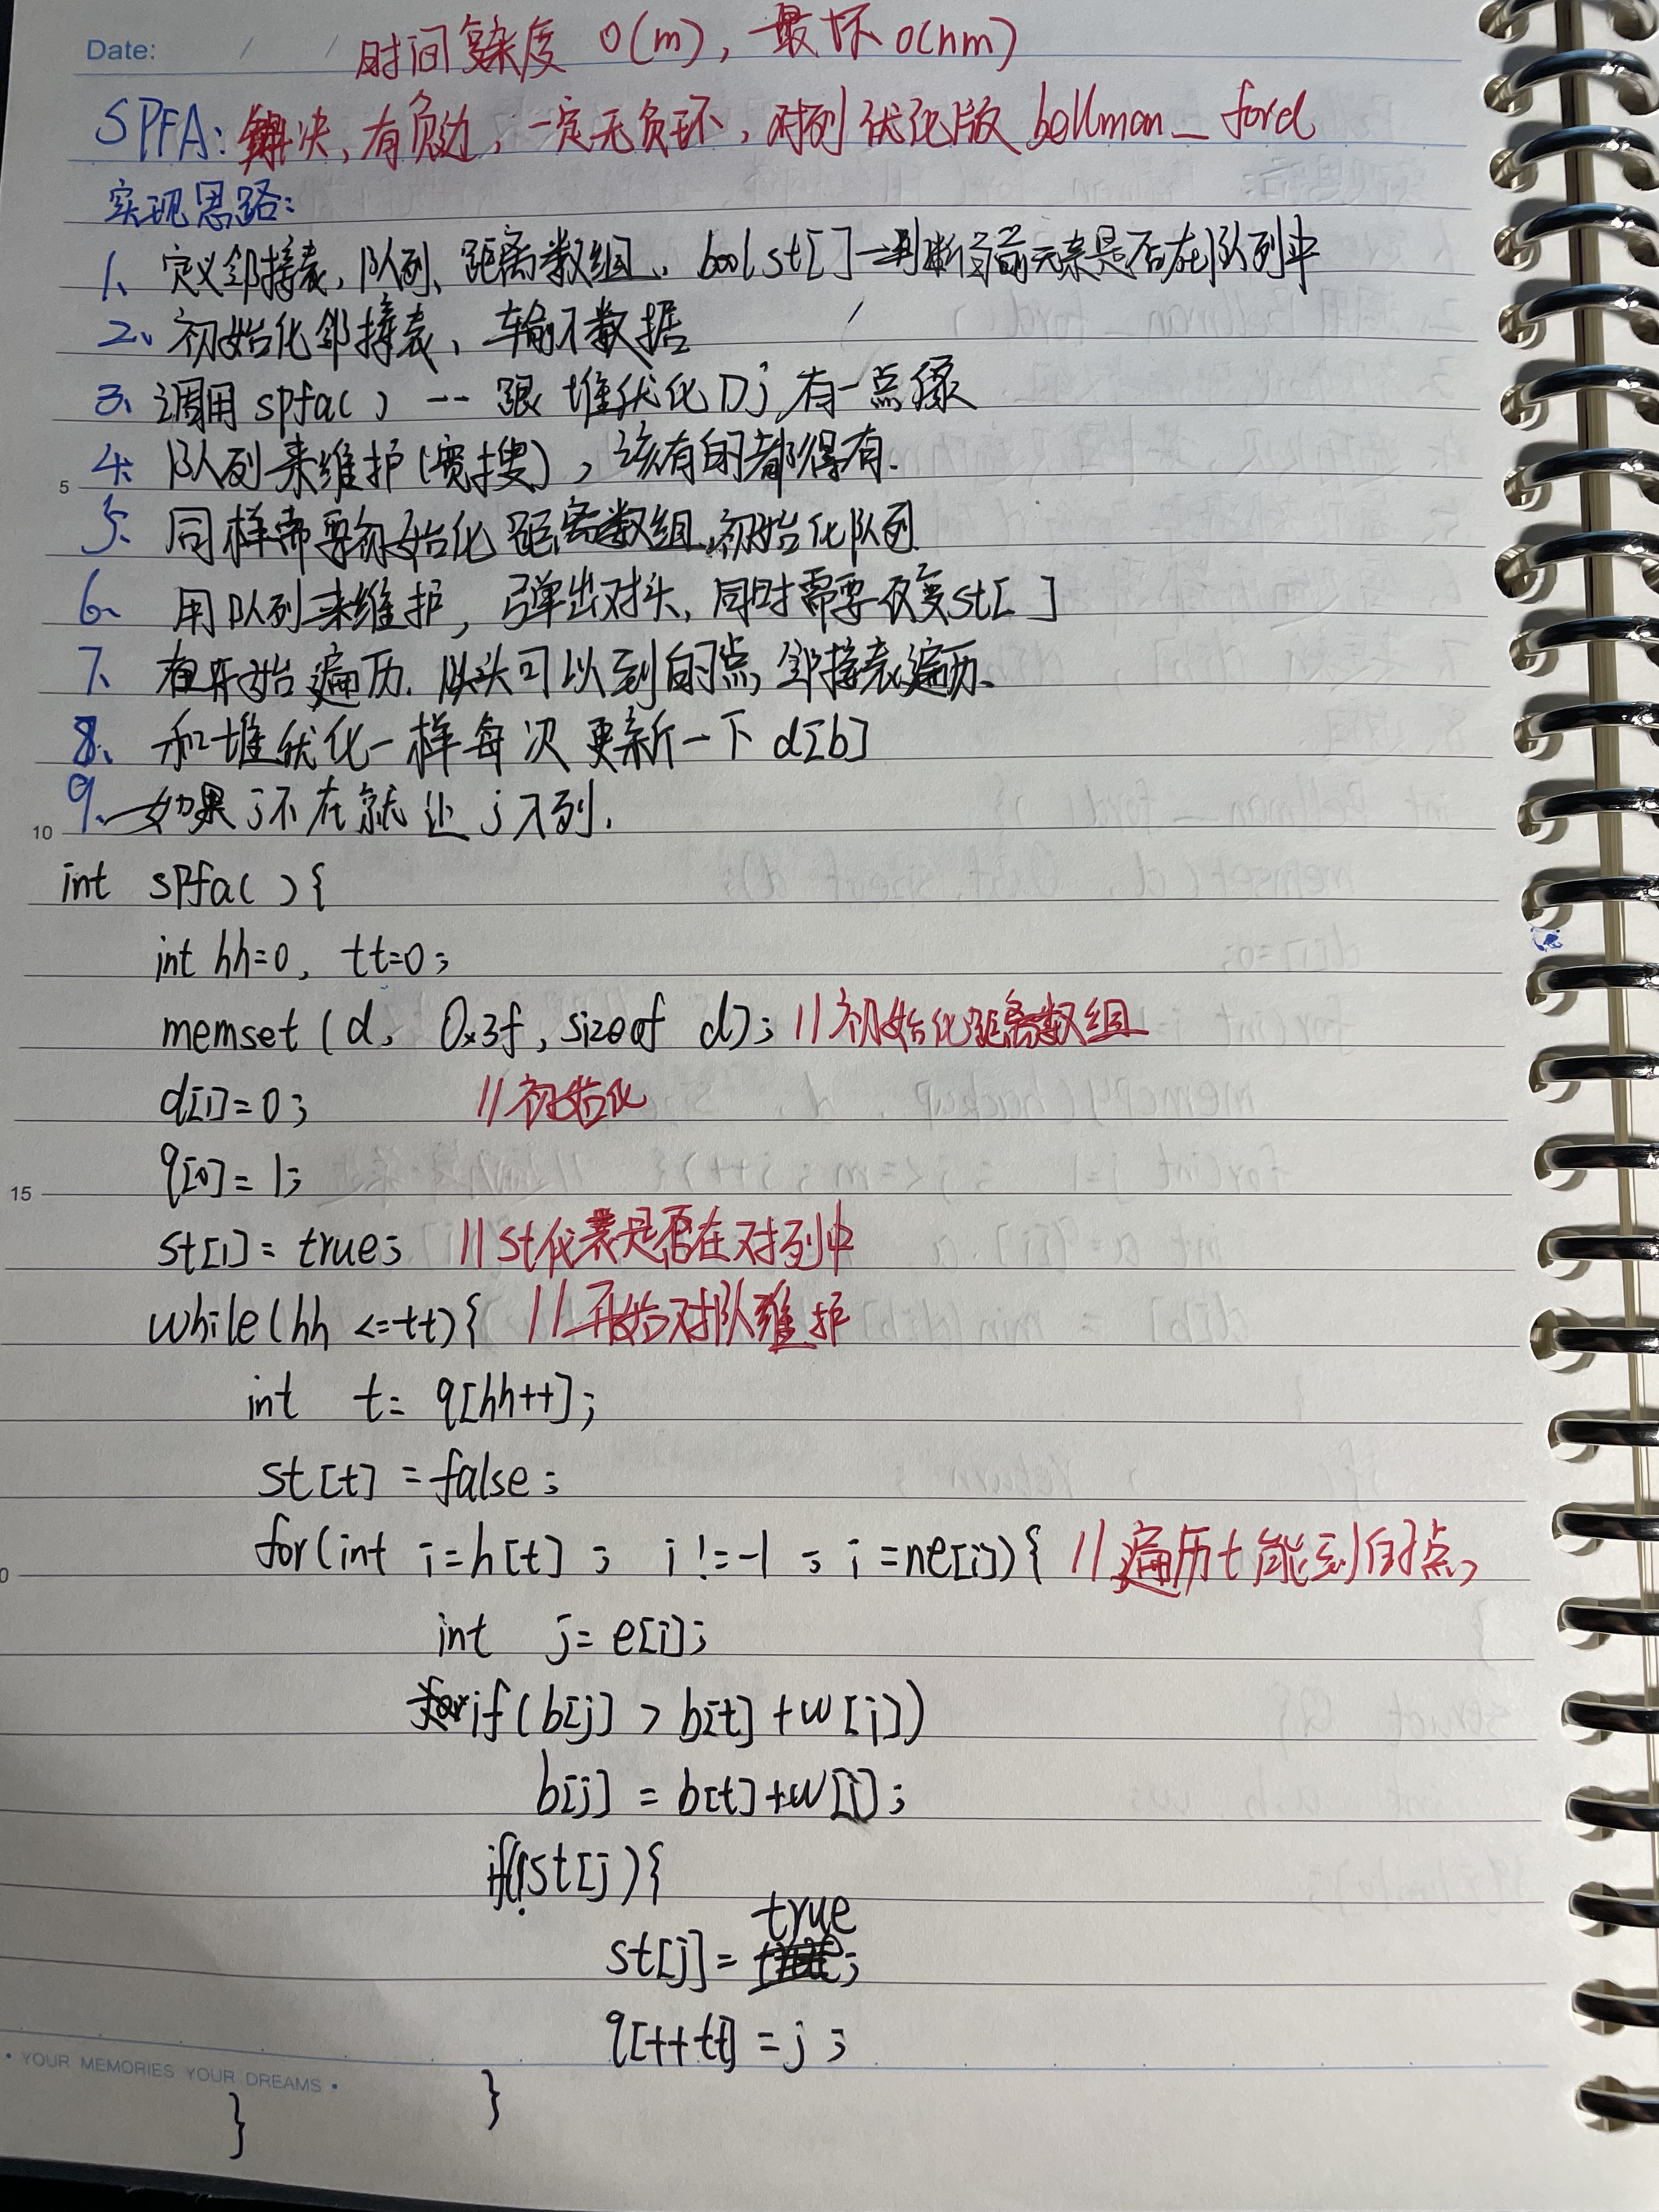 Date: / / 时间复杂度 O(m), 最坏 O(nm)
SPFA: 解决, 有负边, 一定无负环, 对列优化版 bellman_ford
实现思路:
1、定义邻接表, 队列、距离数组、bool st[]→判断当前元素是否在队列中
2、初始化邻接表、输入数据
3、调用 spfa() -- 跟堆优化Dj有一点像
4、队列来维护(宽搜), 该有的都得有.
5
5、同样需要初始化距离数组,初始化队列
6、用队列来维护, 弹出对头, 同时需要改变st[]
7、开始遍历. 队头可以到的点, 邻接表遍历.
8、和堆优化一样每次更新一下 d[b]
9、如果j不在就让j入列.
10
int spfa(){
int hh=0, tt=0;
memset(d, 0x3f, sizeof d); //初始化距离数组
d[1]=0; //初始化
q[0]=1;
15
st[1]=true; //st代表是否在对列中
while(hh <=tt){ //开始对队维护
int t= q[hh++];
st[t]=false;
for(int i=h[t]; i!=-1; i=ne[i]){ //遍历t能到的点,
int j=e[i];
if(b[j] > b[t]+w[i])
b[j] = b[t]+w[i];
if(!st[j){
st[j]=true;
q[++tt]=j;
}
}
• YOUR MEMORIES YOUR DREAMS •